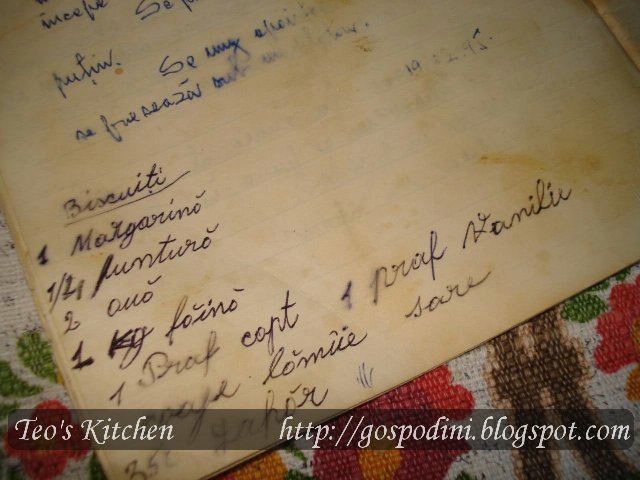 începe Se
puțin. Se mix
se presează 19.02.95.
Biscuiți
1 Margarină
1/2 puntură
2 ouă
1 kg făină
1 Praf copt 1 praf Vanilie
coaje lămîie sare
350 zahăr
Teo's Kitchen http://gospodini.blogspot.com